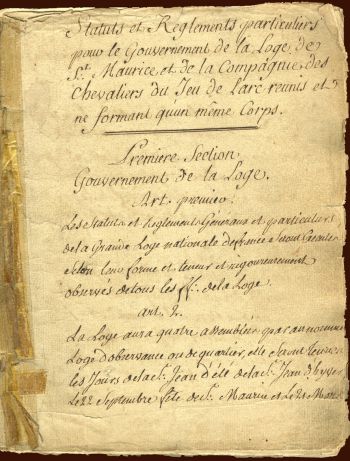 Statuts et Reglements particuliers
pour le Gouvernement de la Loge de
St. Maurice et de la Compagnie des
Chevaliers du Jeu de l'arc reunis et
ne formant qu'un même Corps.
Premiere Section.
Gouvernement de la Loge.
Art. premier.
Les Statuts et Reglements Generaux et particuliers
de la Grande Loge nationale de france seront
selon leur forme et teneur et rigoureusement
observés de tous les ff∴ de la Loge
art. 2.
La Loge aura quatre assemblées par an
Loge d'observance ou de quartier, elle seront
les Jours de la St. Jean d'été de la St. Jean d'hyver
Le 22 Septembre fête de St. Maurice et le 21 Mars